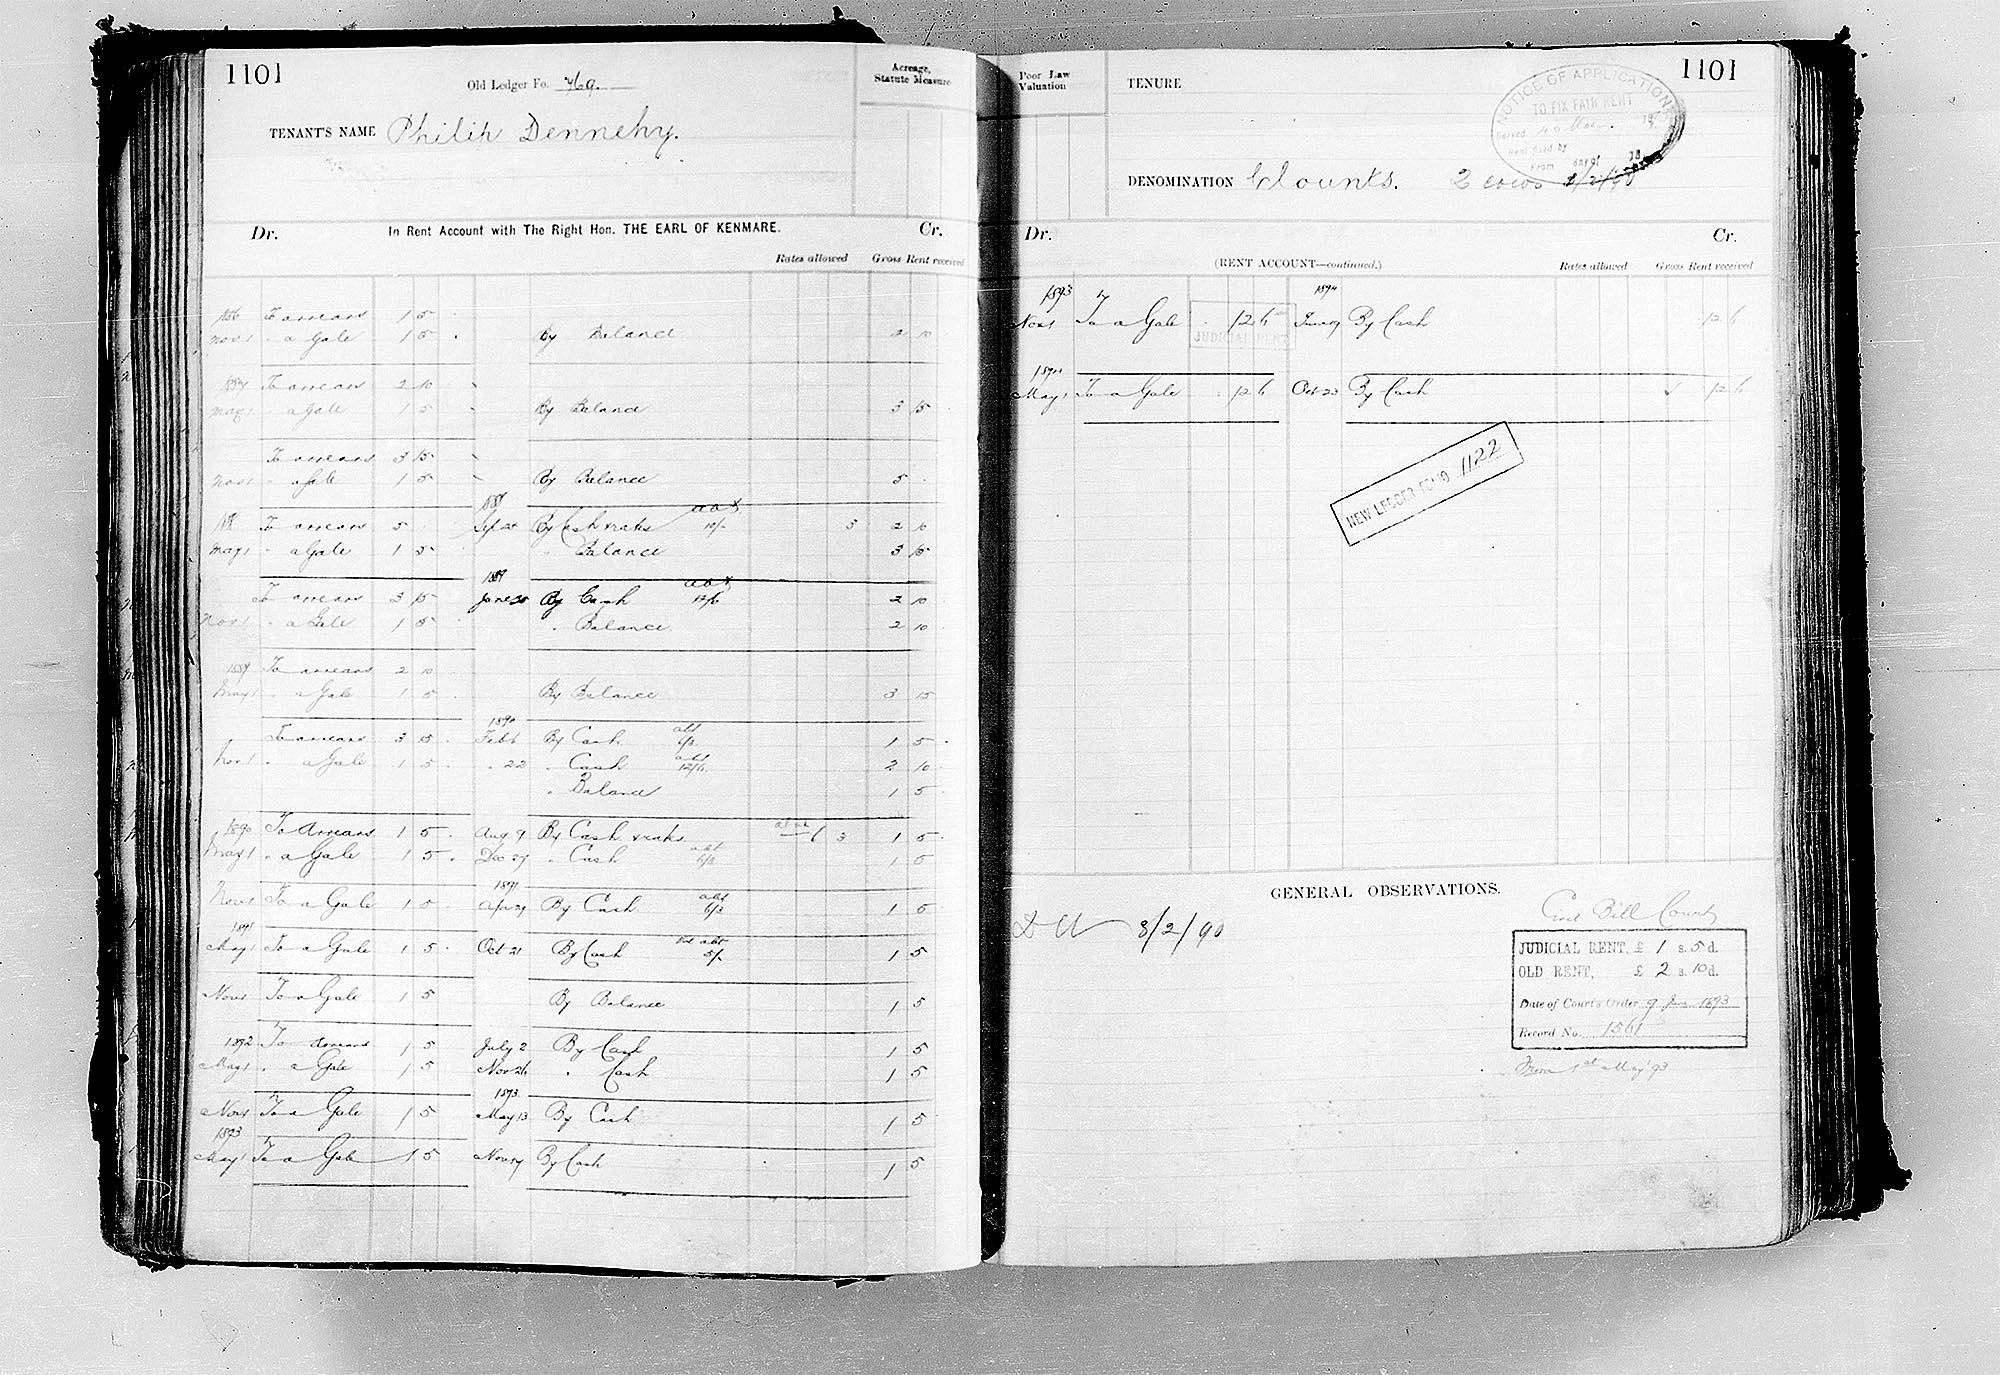 1101
Old Ledger Fo. 769.
Acreage, Statute Measure
TENANT'S NAME Philip Dennehy.
Dr. In Rent Account with The Right Hon. THE EARL OF KENMARE. Cr.
Rates allowed Gross Rent received
1886 To arrears 1 5
Nov 1 " a Gale 1 5 By Balance 2 10
1887 To arrears 2 10
May 1 a Gale 1 5 By Balance 3 15
To arrears 3 15
Nov 1 " a Gale 1 5 By Balance 5
1888
188 To arrears 5 Sept 20 By Cash & rates 10/- 3 2 10
May 1 " a Gale 1 5 " Balance 3 15
1889
To arrears 3 15 June 30 By Cash 12/6 2 10
Nov 1 " a Gale 1 5 " Balance 2 10
1889 To arrears 2 10
May 1 " a Gale 1 5 By Balance 3 15
1890
To arrears 3 15 Feb 6 By Cash abt 6/3 1 5
Nov 1 " a Gale 1 5 " 22 " Cash abt 12/6 2 10
" Balance 1 5
1890 To Arrears 1 5 Aug 9 By Cash & rates 6 3 1 5
May 1 " a Gale 1 5 Dec 27 " Cash abt 6/3 1 5
1891
Nov 1 To a Gale 1 5 Apr 29 By Cash abt 6/3 1 5
1891
May 1 To a Gale 1 5 Oct 21 By Cash abt 5/- 1 5
Nov 1 To a Gale 1 5 By Balance 1 5
1892 To arrears 1 5 July 2 By Cash 1 5
May 1 " a Gale 1 5 Nov 26 " Cash 1 5
1893
Nov 1 To a Gale 1 5 May 13 By Cash 1 5
1893
May 1 To a Gale 1 5 Nov 17 By Cash 1 5
Poor Law Valuation
TENURE
1101
NOTICE OF APPLICATION
TO FIX FAIR RENT
Served
Rent fixed by
From day of 18
DENOMINATION Clounts. 2 cows 8/2/90
Dr. Cr.
(RENT ACCOUNT—continued.) Rates allowed Gross Rent received
1893 1894
Nov 1 To a Gale 12 6 By Cash 12 6
JUDICIAL RENT
1894
May 1 To a Gale 12 6 Oct 23 By Cash 12 6
NEW LEDGER FOLIO 1122
GENERAL OBSERVATIONS.
8/2/90
Civil Bill Court
JUDICIAL RENT, £ 1 s. 5 d.
OLD RENT, £ 2 s. 10 d.
Date of Court's Order 9 Jan 1893
Record No. 1561
From 1st May '93